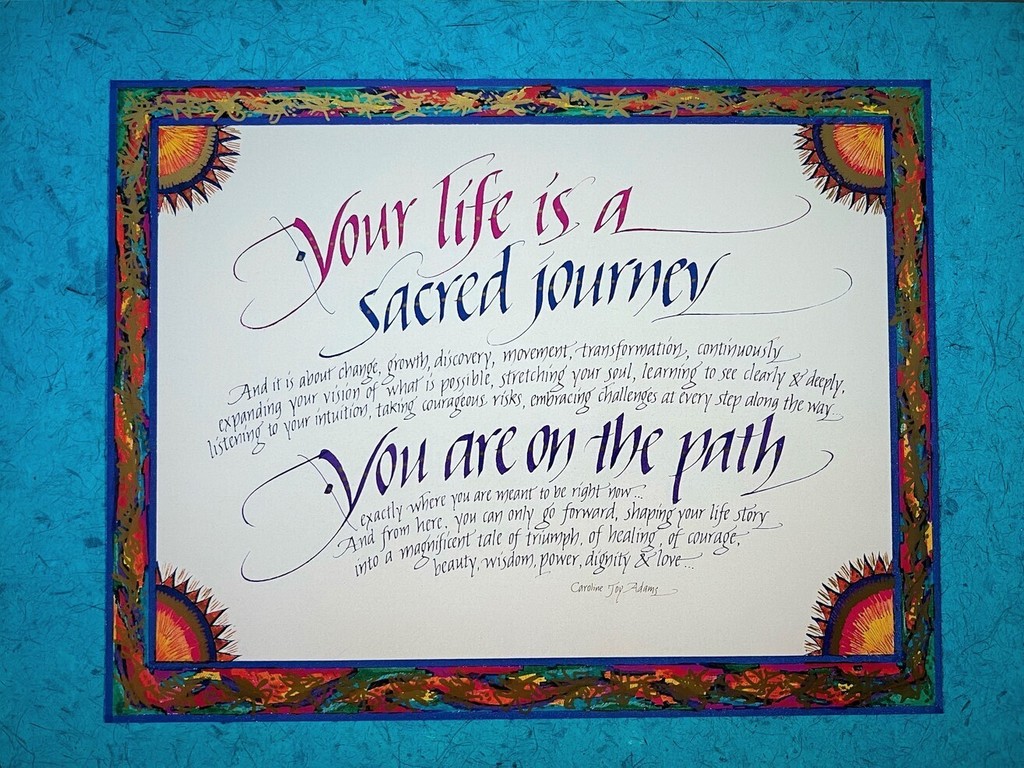 Your life is a
sacred journey
And it is about change, growth, discovery, movement, transformation, continuously
expanding your vision of what is possible, stretching your soul, learning to see clearly & deeply,
listening to your intuition, taking courageous risks, embracing challenges at every step along the way...
You are on the path
exactly where you are meant to be right now...
And from here, you can only go forward, shaping your life story
into a magnificent tale of triumph, of healing, of courage,
beauty, wisdom, power, dignity & love...
Caroline Joy Adams